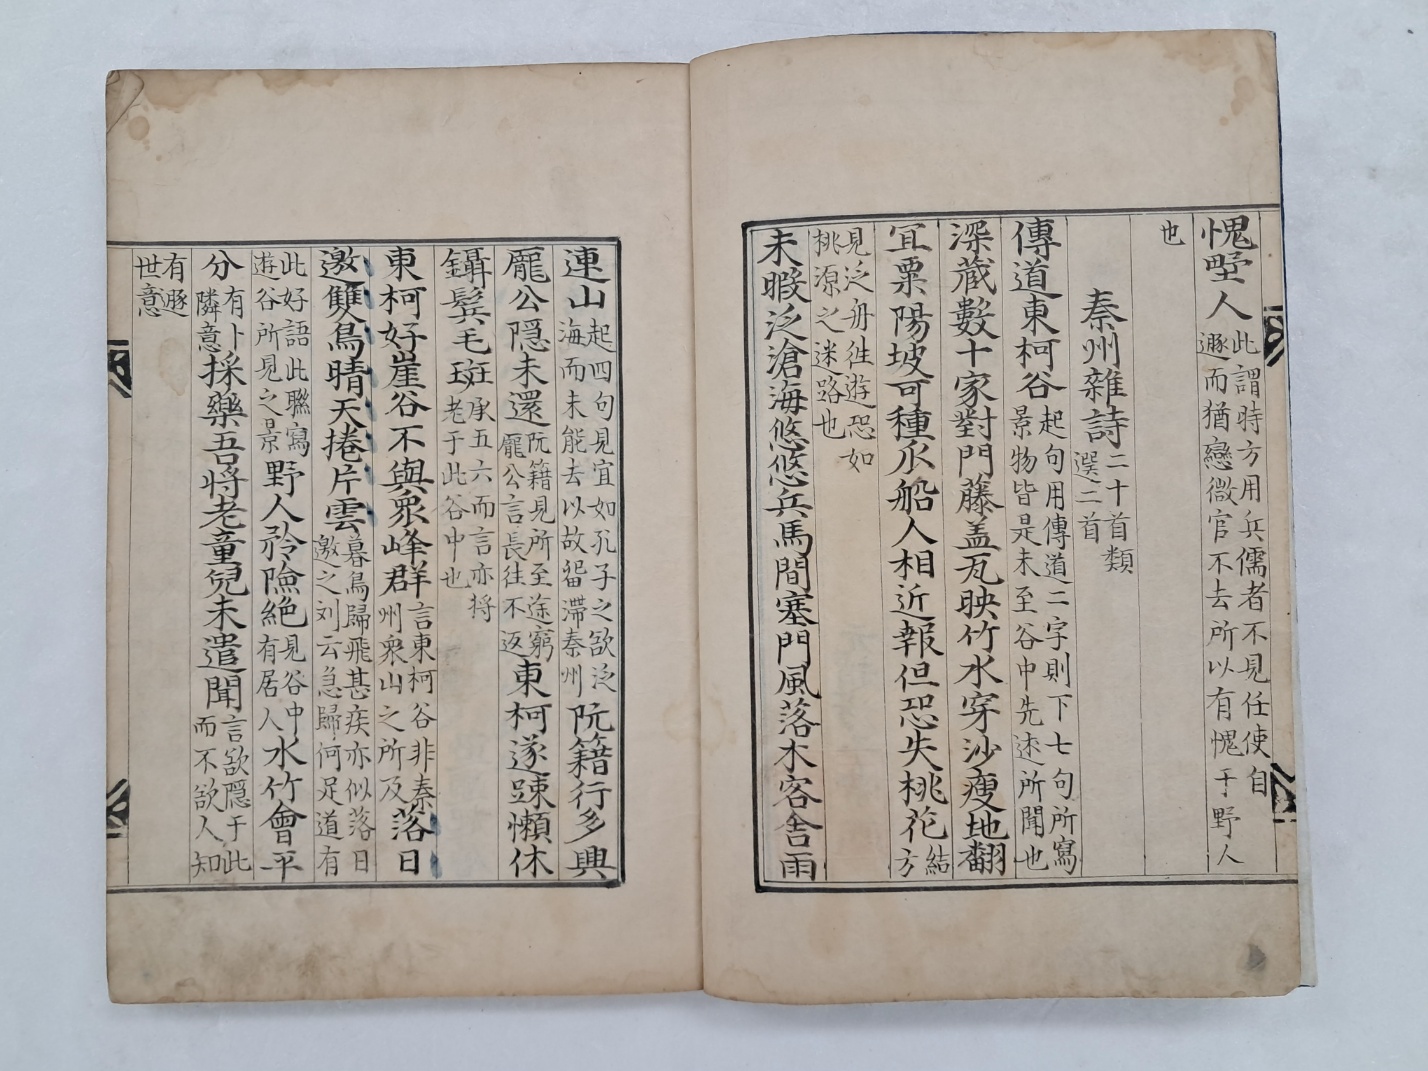 愧墅人此謂時方用兵儒者不見任使自
遯而猶戀微官不去所以有愧于野人
也
秦州雜詩二十首類
選二首
傳道東柯谷起句用傳道二字則下七句所寫
景物皆是未至谷中先述所聞也
深藏數十家對門藤盖瓦映竹水穿沙瘦地翻
宜粟陽坡可種瓜船人相近報但恐失桃花結
方
見泛舟徃遊恐如
桃源之迷路也
未暇泛滄海悠悠兵馬間塞門風落木客舍雨
連山起四句見宜如孔子之欲泛
海而未能去以故畱滯秦州
阮籍行多興
龎公隱未還阮籍見所至途窮
龎公言長往不返
東柯遂踈懶休
鑷鬂毛斑承五六而言亦将
老于此谷中也
東柯好崖谷不與衆峰群言東柯谷非秦
州衆山之所及
落日
邀雙鳥晴天捲片雲暮鳥歸飛甚疾亦似落日
邀之刘云急歸何足道有
此好語此聮寫
遊谷所見之景
野人矜險絶見谷中
有居人
水竹會平
分有卜
隣意
採藥吾将老童兒未遣聞言欲隱于此
而不欲人知
有遯
世意